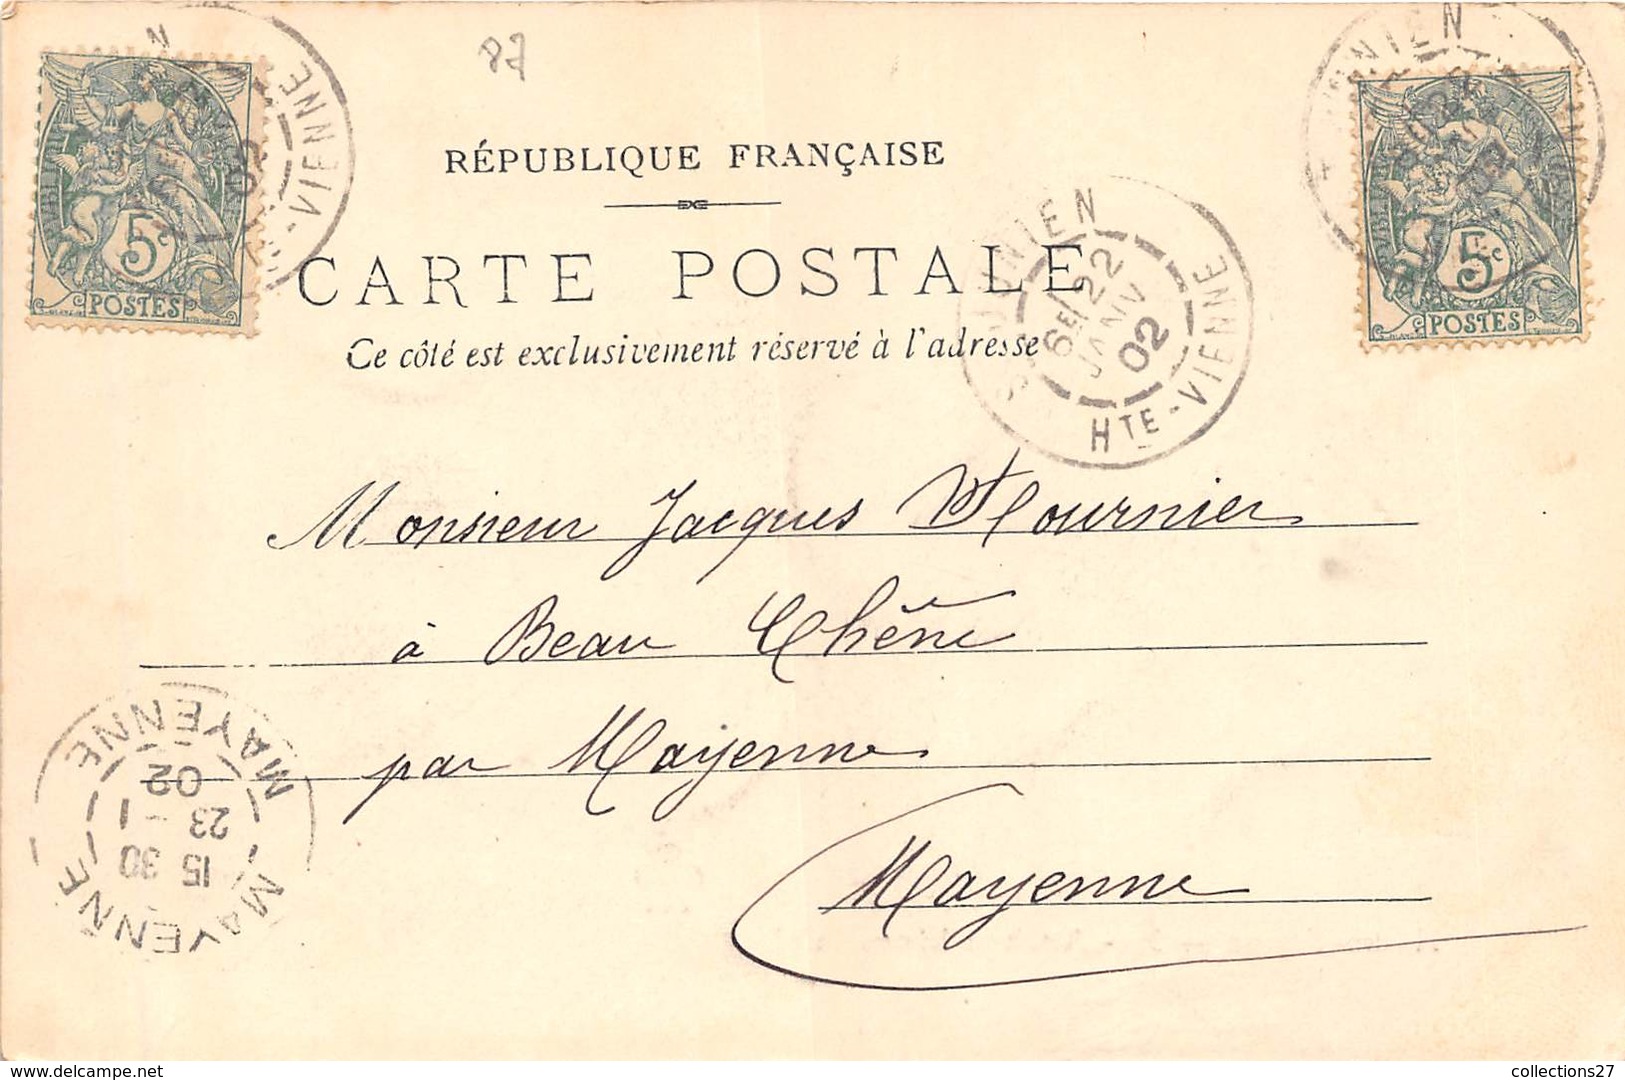 87
RÉPUBLIQUE FRANÇAISE
CARTE POSTALE
Ce côté est exclusivement réservé à l'adresse
5c
POSTES
HTE-VIENNE
02
5c
POSTES
ST JUNIEN
6E/22
JANV
02
HTE-VIENNE
Monsieur Jacques
à Beau Chêne
par Mayenne
Mayenne
MAYENNE
15 30
23 - 1
02
MAYENNE
delcampe.net
collections27